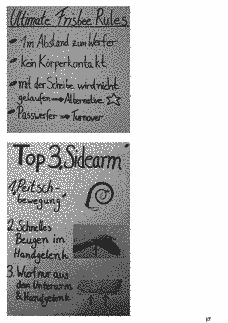 Ultimate Frisbee Rules
1m Abstand zum Werfer
kein Körperkontakt
mit der Scheibe wird nicht
gelaufen → Alternative
Passwerfer → Turnover
Top 3 Sidearm
1. Peitsch-
bewegung"
2. Schnelles
Beugen im
Handgelenk
3. Wurf nur aus
dem Unterarm
& Handgelenk